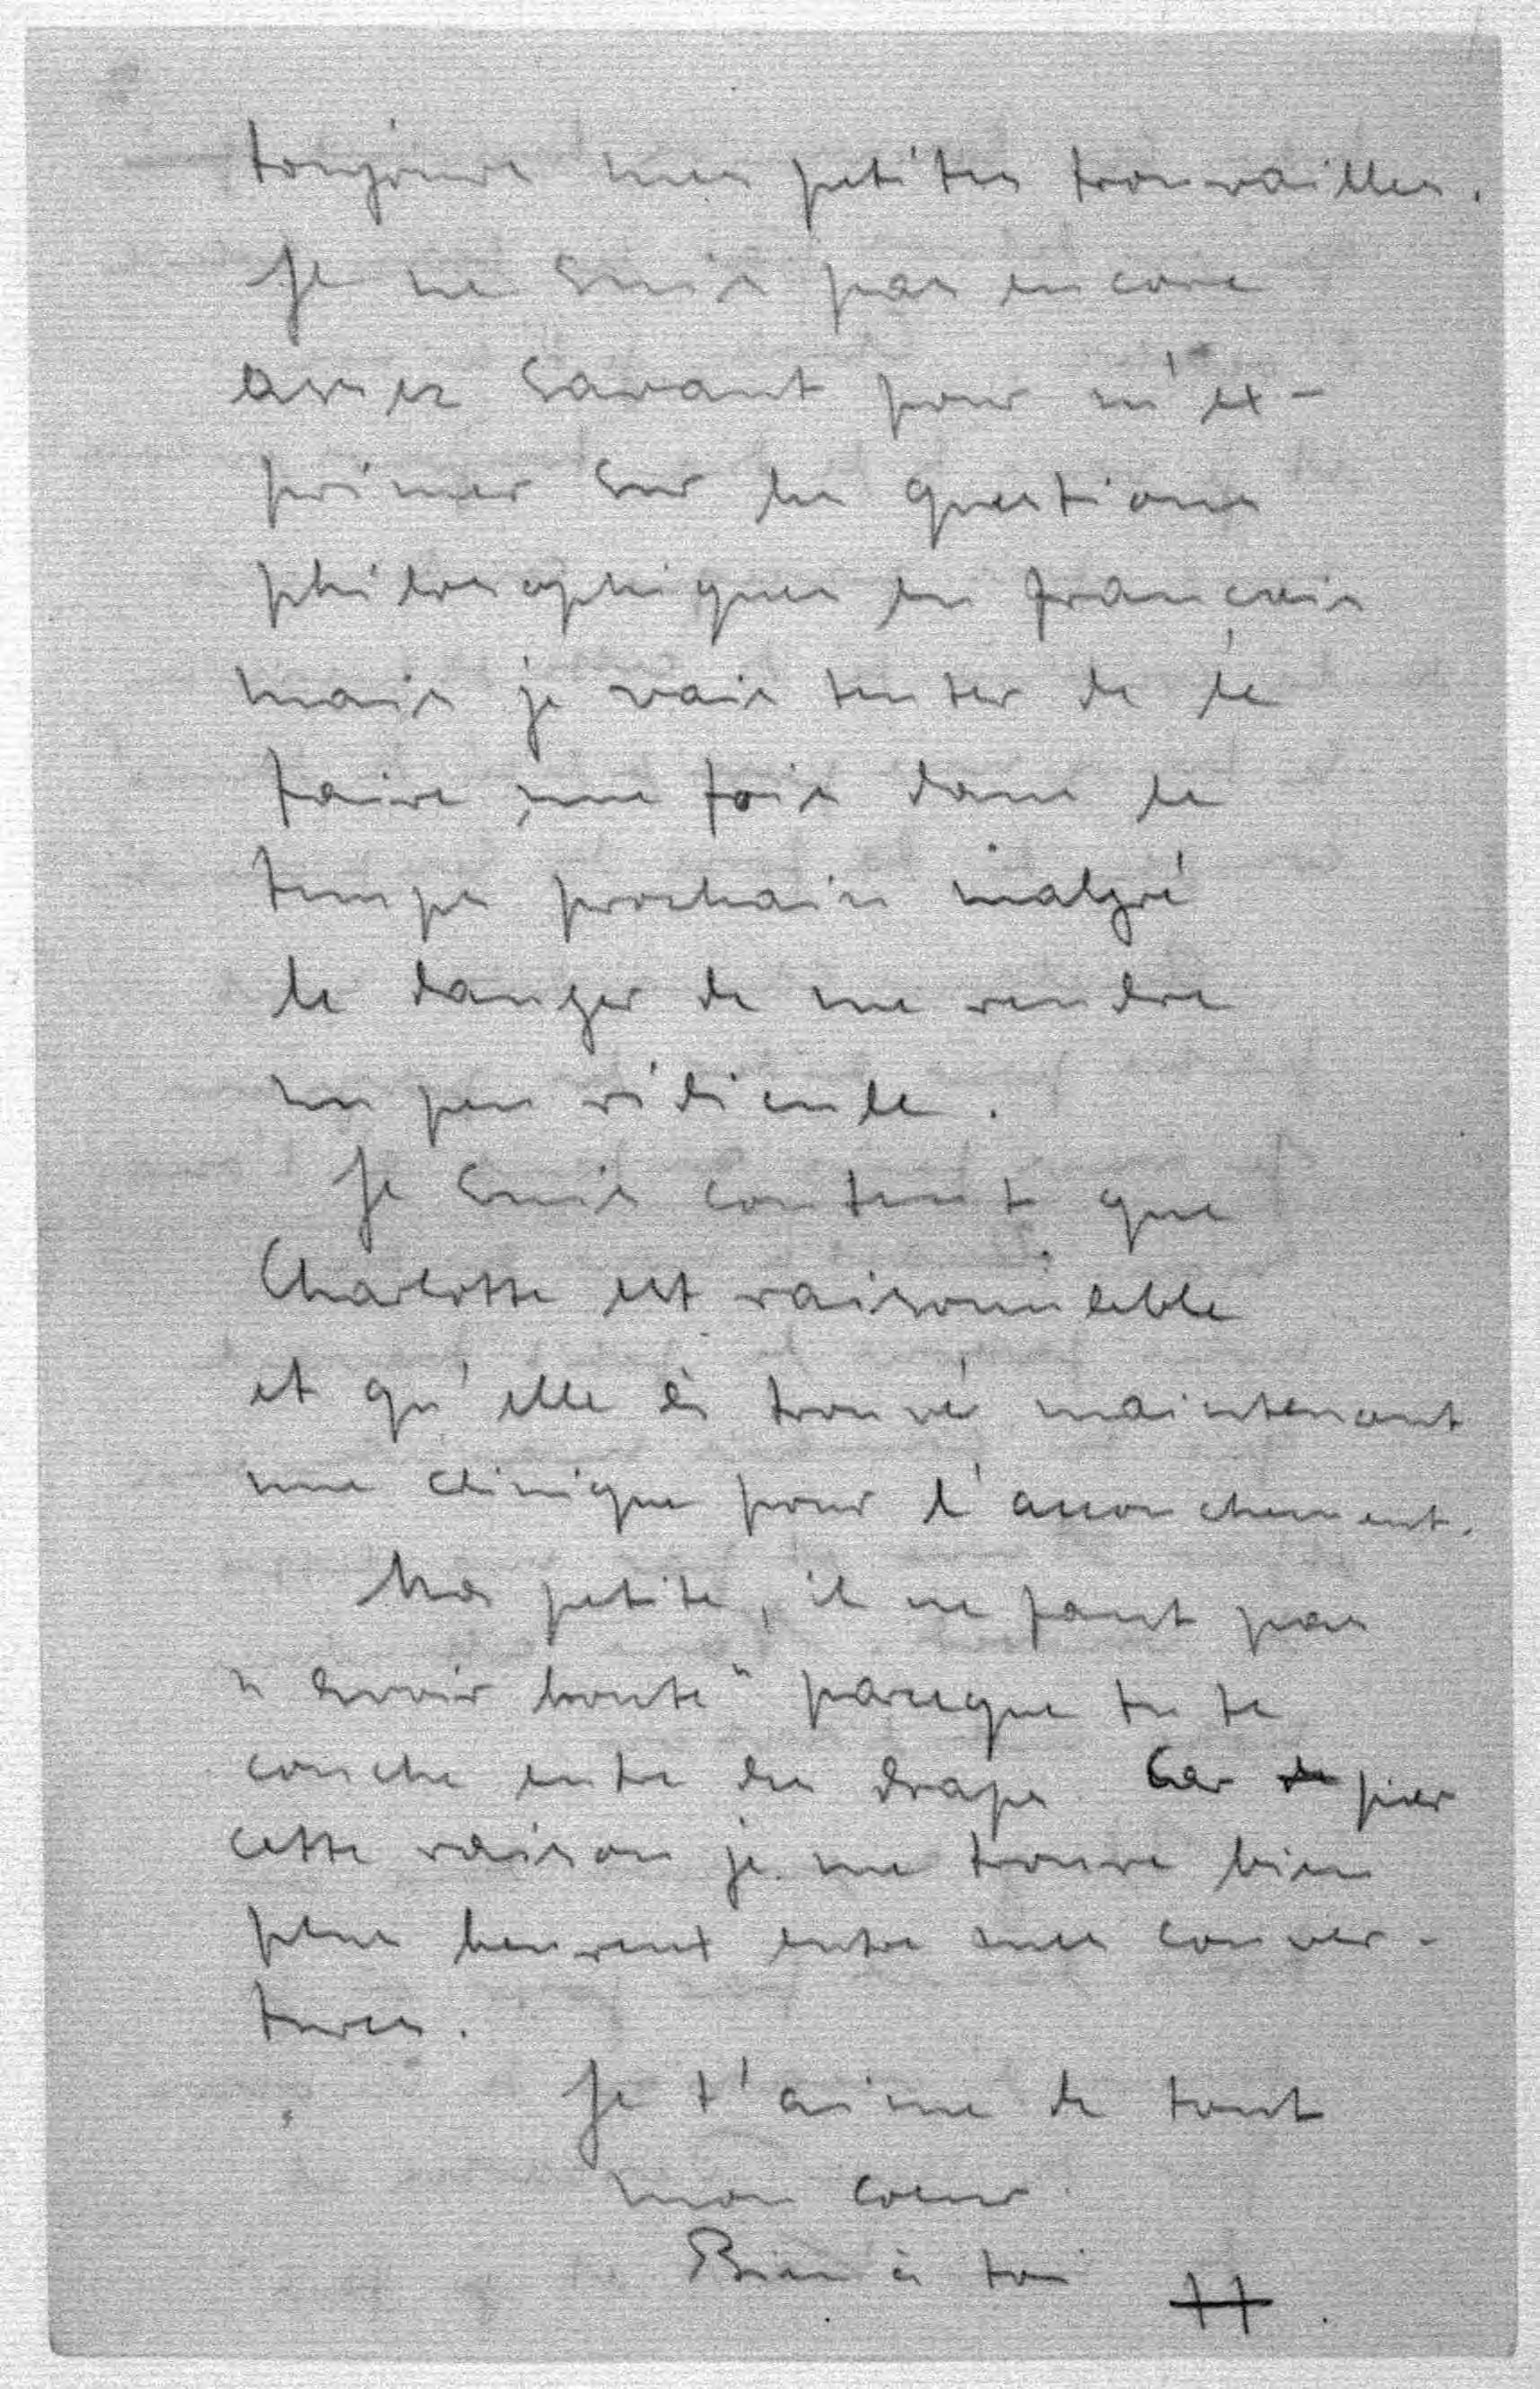 toujours mes petites trouvailles.
Je ne suis pas encore
assez savant pour m'ex-
primer sur les questions
philosophiques en francais
mais je vais tenter de le
faire une fois dans le
temps prochain malgré
le danger de me rendre
un peu ridicule.
Je suis content que
Charlotte est raisonnable
et qu'elle à trouvé maintenant
une clinique pour l'accouchement.
Ma petite, il ne faut pas
"avoir honte" parceque tu te
couche entre des draps. Car
cette raison je me trouve bien
plus heureux entre mes couver-
tures.
Je t'aime de tout
mon coeur.
Bien à toi H.